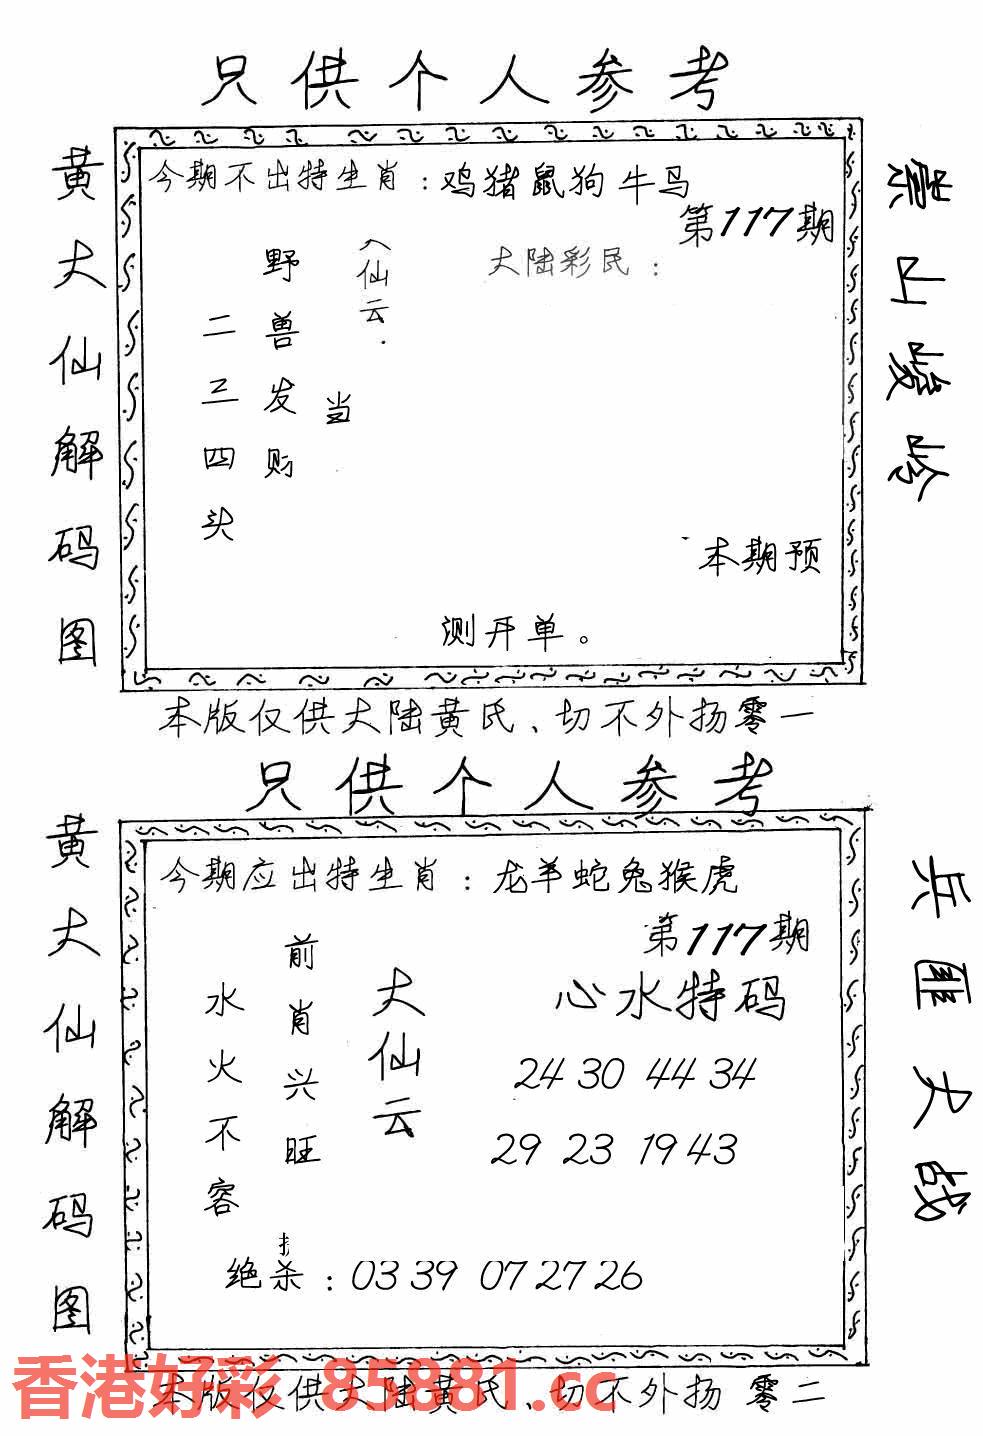 只供个人参考
黄大仙解码图
今期不出特生肖：鸡猪鼠狗牛马
第117期
大陆彩民：
大仙云.
野兽发财
二三四头
当
本期预
测开单。
崇山峻岭
本版仅供大陆黄氏、切不外扬零一
只供个人参考
黄大仙解码图
今期应出特生肖：龙羊蛇兔猴虎
第117期
心水特码
大仙云
前肖兴旺
水火不容
24 30 44 34
29 23 19 43
绝杀：03 39 07 27 26
兵匪大战
本版仅供大陆黄氏、切不外扬 零二
香港好彩 85881.cc